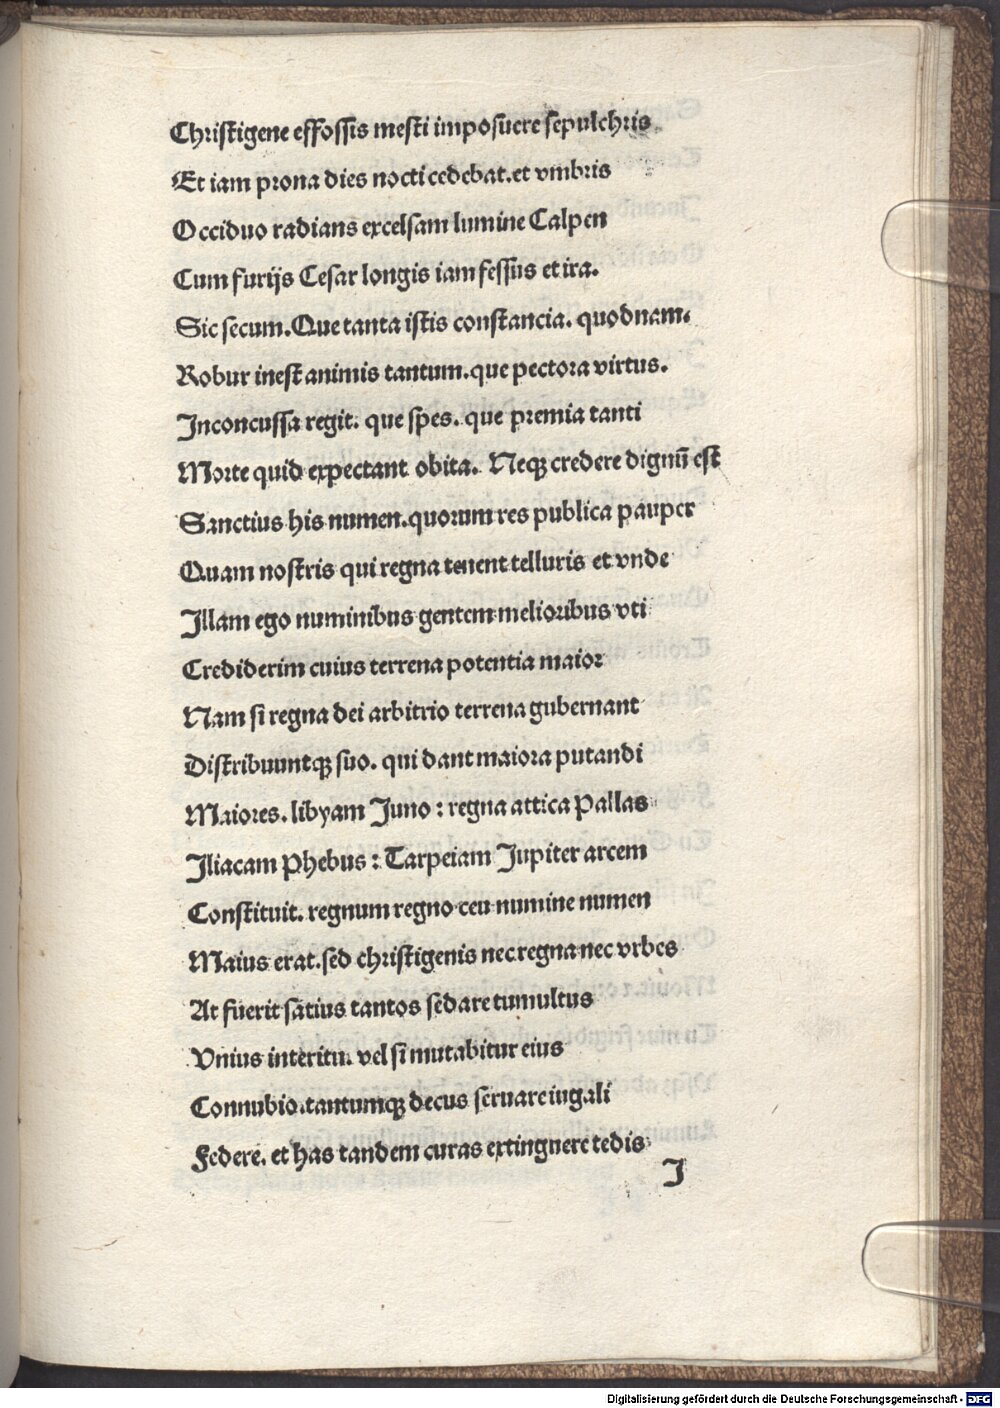 Christigene effossis mesti imposuere sepulchris
Et iam prona dies nocti cedebat.et vmbris
Occiduo radians excelsam lumine Calpen
Cum furijs Cesar longis iam fessus et ira.
Sic secum.Que tanta istis constancia. quodnam.
Robur inest animis tantum.que pectora virtus.
Inconcussa regit. que spes. que premia tanti
Morte quid expectant obita. Neqꝫ credere dignũ est
Sanctius his numen.quorum res publica pauper
Quam nostris qui regna tenent telluris et vnde
Illam ego numinibus gentem melioribus vti
Crediderim cuius terrena potentia maior
Nam si regna dei arbitrio terrena gubernant
Distribuuntqꝫ suo. qui dant maiora putandi
Maiores. libyam Juno : regna attica Pallas
Iliacam Phebus : Tarpeiam Jupiter arcem
Constituit. regnum regno ceu numine numen
Maius erat.sed christigenis nec regna nec vrbes
At fuerit satius tantos sedare tumultus
Vnius interitu. vel si mutabitur eius
Connubio.tantumqꝫ decus seruare iugali
Federe. et has tandem curas extinguere tedis
J
Digitalisierung gefördert durch die Deutsche Forschungsgemeinschaft - DFG